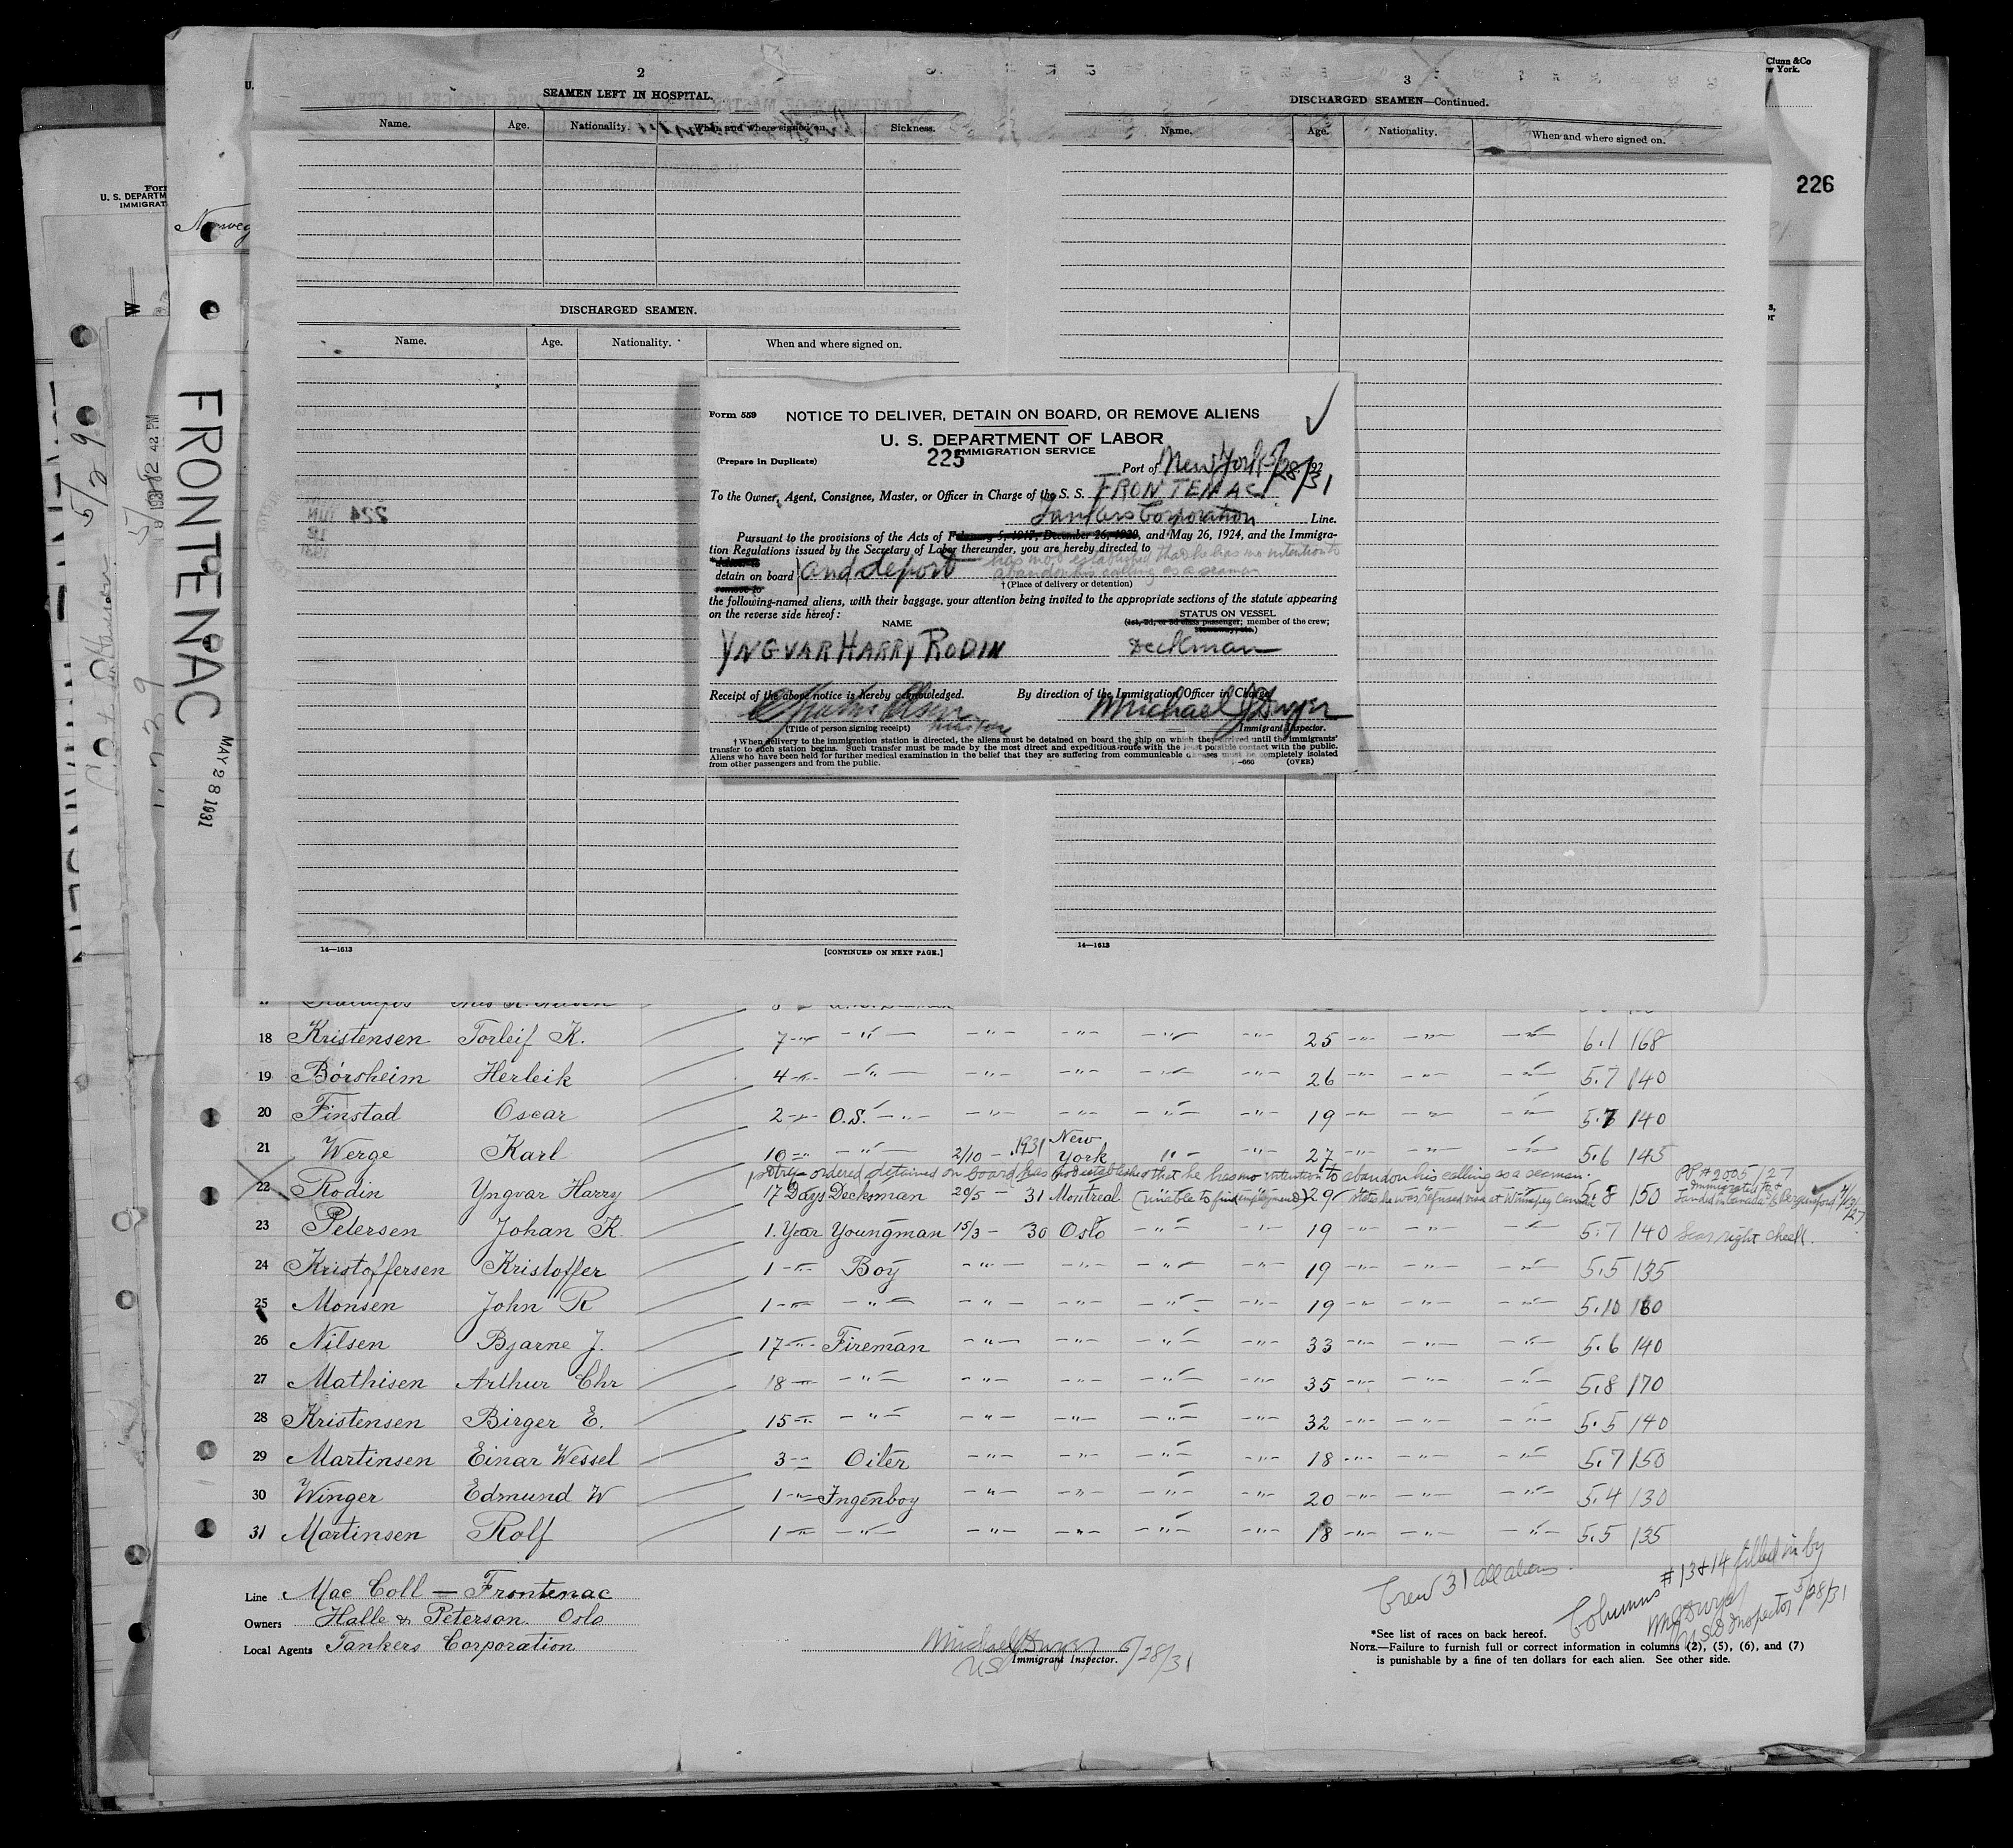 Clunn & Co
w York.
226
U. S. DEPARTM
IMMIGRAT
FRONTENAC
MAY 28 1931
2
SEAMEN LEFT IN HOSPITAL.
Name. Age. Nationality. When and where signed on. Sickness.
DISCHARGED SEAMEN.
Name. Age. Nationality. When and where signed on.
14—1613 [CONTINUED ON NEXT PAGE.]
3
DISCHARGED SEAMEN—Continued.
Name. Age. Nationality. When and where signed on.
14—1613
Form 559 NOTICE TO DELIVER, DETAIN ON BOARD, OR REMOVE ALIENS
U. S. DEPARTMENT OF LABOR
IMMIGRATION SERVICE
225
(Prepare in Duplicate) Port of New York 5/28/31 192
To the Owner, Agent, Consignee, Master, or Officer in Charge of the S. S. FRONTENAC
Tankers Corporation Line.
Pursuant to the provisions of the Acts of February 5, 1917, December 26, 1920, and May 26, 1924, and the Immigra-
tion Regulations issued by the Secretary of Labor thereunder, you are hereby directed to
has not established that he has no intention to
abandon his calling as a seaman
detain on board and deport
remove to
† (Place of delivery or detention)
the following-named aliens, with their baggage, your attention being invited to the appropriate sections of the statute appearing
on the reverse side hereof:
NAME STATUS ON VESSEL
(1st, 2d, or 3d class passenger; member of the crew;
stowaway, etc.)
YNGVAR HARRY RODIN Deckman
Receipt of the above notice is hereby acknowledged. By direction of the Immigration Officer in Charge
Michael J Dwyer
(Title of person signing receipt) Immigrant Inspector.
† When delivery to the immigration station is directed, the aliens must be detained on board the ship on which they arrived until the immigrants'
transfer to such station begins. Such transfer must be made by the most direct and expeditious route with the least possible contact with the public.
Aliens who have been held for further medical examination in the belief that they are suffering from communicable diseases must be completely isolated
from other passengers and from the public. (OVER)
18 Kristensen Torleif K. 7 -"- -"- -"- -"- -"- -"- 25 -"- -"- -"- 6.1 168
19 Börsheim Herleik 4 -"- -"- -"- -"- -"- -"- 26 -"- -"- -"- 5.7 140
20 Finstad Oscar 2 -"- O.S. -"- -"- -"- -"- -"- 19 -"- -"- -"- 5.7 140
21 Werge Karl 10 -"- -"- 2/10 - 1931 New York -"- -"- 27 -"- -"- -"- 5.6 145
ordered detained on board has not established that he has no intention to abandon his calling as a seaman. PP # 2005/27
22 Rodin Yngvar Harry 17 Days Decksman 20/5 - 31 Montreal (unable to find employment) 29 states he was refused visa at Winnipeg Canada 5.8 150 Immigrated to & landed in Canada Bergensfjord 4/13/27
23 Petersen Johan K. 1. Year Youngman 15/3 - 30 Oslo -"- -"- 19 -"- -"- -"- 5.7 140 Scar right cheek.
24 Kristoffersen Kristoffer 1 -"- Boy -"- -"- -"- -"- 19 -"- -"- -"- 5.5 135
25 Monsen John R 1 -"- -"- -"- -"- -"- -"- 19 -"- -"- -"- 5.10 160
26 Nilsen Bjarne J. 17 -"- Fireman -"- -"- -"- -"- 33 -"- -"- -"- 5.6 140
27 Mathisen Arthur Chr 18 -"- -"- -"- -"- -"- -"- 35 -"- -"- -"- 5.8 170
28 Kristensen Birger E. 15 -"- -"- -"- -"- -"- -"- 32 -"- -"- -"- 5.5 140
29 Martinsen Einar Wessel 3 -"- Oiler -"- -"- -"- -"- 18 -"- -"- -"- 5.7 150
30 Winger Edmund W 1 -"- Ingenboy -"- -"- -"- -"- 20 -"- -"- -"- 5.4 130
31 Martinsen Rolf 1 -"- -"- -"- -"- -"- -"- 18 -"- -"- -"- 5.5 135
Line Mac Coll — Frontenac
Owners Halle & Peterson. Oslo
Local Agents Tankers Corporation
Michael J Dwyer 5/28/31
US Immigrant Inspector.
Crew 31 all aliens.
Columns # 13 & 14 filled in by
MJ Dwyer
US Inspector 5/28/31
*See list of races on back hereof.
NOTE.—Failure to furnish full or correct information in columns (2), (5), (6), and (7)
is punishable by a fine of ten dollars for each alien. See other side.